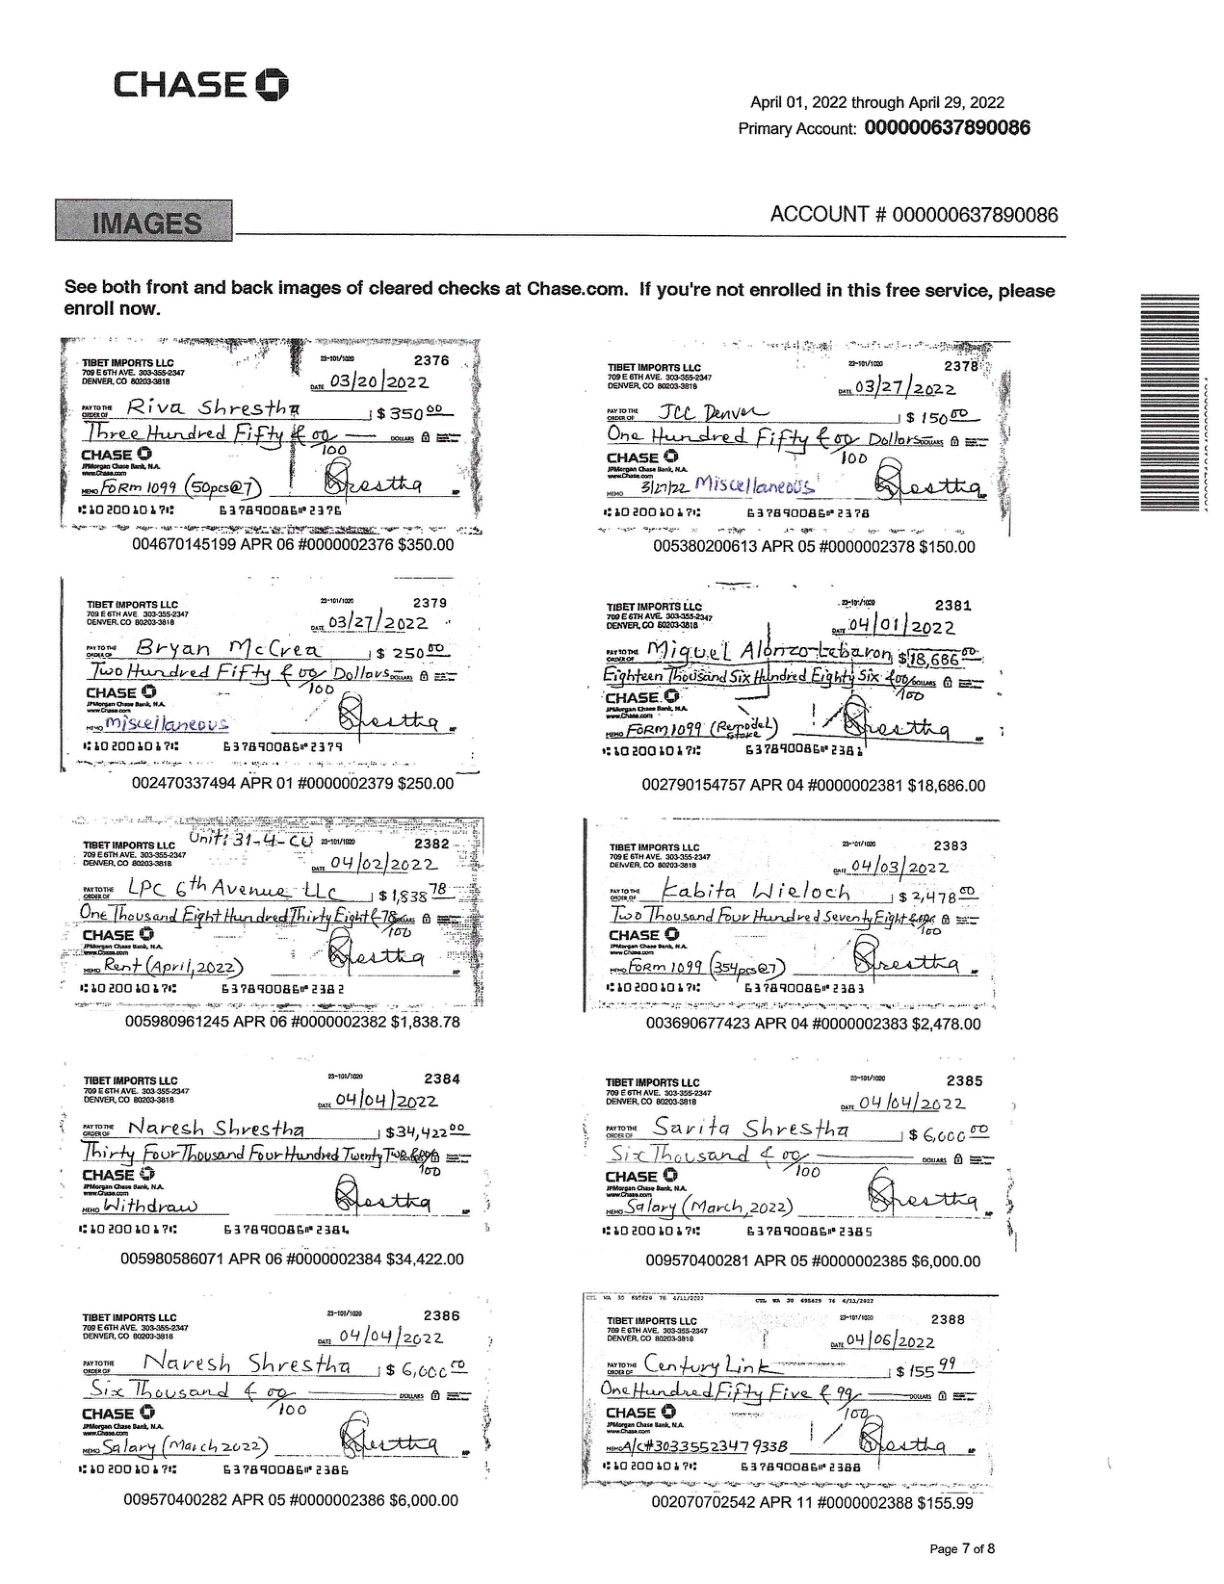 CHASE
April 01, 2022 through April 29, 2022
Primary Account: 000000637890086
IMAGES
ACCOUNT # 000000637890086
See both front and back images of cleared checks at Chase.com. If you're not enrolled in this free service, please
enroll now.
TIBET IMPORTS LLC 23-101/1020 2376
709 E 6TH AVE. 303-355-2347
DENVER, CO 80203-3818
DATE 03/20/2022
PAY TO THE ORDER OF Riva Shrestha $ 350 00
Three Hundred Fifty & 00/100 DOLLARS
CHASE
JPMorgan Chase Bank, N.A.
www.Chase.com
MEMO FORM 1099 (50pcs@7) Shrestha
⑆102001017⑆ 637890086⑈2376
004670145199 APR 06 #0000002376 $350.00
TIBET IMPORTS LLC 23-101/1020 2378
709 E 6TH AVE. 303-355-2347
DENVER, CO 80203-3818
DATE 03/27/2022
PAY TO THE ORDER OF JCC Denver $ 150 00
One Hundred Fifty & 00/100 Dollars DOLLARS
CHASE
JPMorgan Chase Bank, N.A.
www.Chase.com
MEMO 3/27/22 Miscellaneous Shrestha
⑆102001017⑆ 637890086⑈2378
005380200613 APR 05 #0000002378 $150.00
TIBET IMPORTS LLC 23-101/1020 2379
709 E 6TH AVE. 303-355-2347
DENVER, CO 80203-3818
DATE 03/27/2022
PAY TO THE ORDER OF Bryan McCrea $ 250 00
Two Hundred Fifty & 00/100 Dollars DOLLARS
CHASE
JPMorgan Chase Bank, N.A.
www.Chase.com
MEMO Miscellaneous Shrestha
⑆102001017⑆ 637890086⑈2379
002470337494 APR 01 #0000002379 $250.00
TIBET IMPORTS LLC 23-101/1020 2381
709 E 6TH AVE. 303-355-2347
DENVER, CO 80203-3818
DATE 04/01/2022
PAY TO THE ORDER OF Miguel Alonzo Lebaron $ 18,686 00
Eighteen Thousand Six Hundred Eighty Six & 00/100 DOLLARS
CHASE
JPMorgan Chase Bank, N.A.
www.Chase.com
MEMO FORM 1099 (Remodel Store) Shrestha
⑆102001017⑆ 637890086⑈2381
002790154757 APR 04 #0000002381 $18,686.00
Unit: 31-4-CU
TIBET IMPORTS LLC 23-101/1020 2382
709 E 6TH AVE. 303-355-2347
DENVER, CO 80203-3818
DATE 04/02/2022
PAY TO THE ORDER OF LPC 6th Avenue LLC $ 1,838 78
One Thousand Eight Hundred Thirty Eight & 78/100 DOLLARS
CHASE
JPMorgan Chase Bank, N.A.
www.Chase.com
MEMO Rent (April, 2022) Shrestha
⑆102001017⑆ 637890086⑈2382
005980961245 APR 06 #0000002382 $1,838.78
TIBET IMPORTS LLC 23-101/1020 2383
709 E 6TH AVE. 303-355-2347
DENVER, CO 80203-3818
DATE 04/03/2022
PAY TO THE ORDER OF Kabita Wieloch $ 2,478 00
Two Thousand Four Hundred Seventy Eight & 00/100
CHASE
JPMorgan Chase Bank, N.A.
www.Chase.com
MEMO FORM 1099 (354pcs@7) Shrestha
⑆102001017⑆ 637890086⑈2383
003690677423 APR 04 #0000002383 $2,478.00
TIBET IMPORTS LLC 23-101/1020 2384
709 E 6TH AVE. 303-355-2347
DENVER, CO 80203-3818
DATE 04/04/2022
PAY TO THE ORDER OF Naresh Shrestha $34,422 00
Thirty Four Thousand Four Hundred Twenty Two & 00/100
CHASE
JPMorgan Chase Bank, N.A.
www.Chase.com
MEMO Withdraw Shrestha
⑆102001017⑆ 637890086⑈2384
005980586071 APR 06 #0000002384 $34,422.00
TIBET IMPORTS LLC 23-101/1020 2385
709 E 6TH AVE. 303-355-2347
DENVER, CO 80203-3818
DATE 04/04/2022
PAY TO THE ORDER OF Sarita Shrestha $ 6,000 00
Six Thousand & 00/100 DOLLARS
CHASE
JPMorgan Chase Bank, N.A.
www.Chase.com
MEMO Salary (March, 2022) Shrestha
⑆102001017⑆ 637890086⑈2385
009570400281 APR 05 #0000002385 $6,000.00
TIBET IMPORTS LLC 23-101/1020 2386
709 E 6TH AVE. 303-355-2347
DENVER, CO 80203-3818
DATE 04/04/2022
PAY TO THE ORDER OF Naresh Shrestha $ 6,000 00
Six Thousand & 00/100 DOLLARS
CHASE
JPMorgan Chase Bank, N.A.
www.Chase.com
MEMO Salary (March 2022) Shrestha
⑆102001017⑆ 637890086⑈2386
009570400282 APR 05 #0000002386 $6,000.00
CTL WA 30 695629 76 4/11/2022 CTL WA 30 695629 76 4/11/2022
TIBET IMPORTS LLC 23-101/1020 2388
709 E 6TH AVE. 303-355-2347
DENVER, CO 80203-3818
DATE 04/06/2022
PAY TO THE ORDER OF Century Link $ 155 99
One Hundred Fifty Five & 99/100 DOLLARS
CHASE
JPMorgan Chase Bank, N.A.
www.Chase.com
MEMO A/c#3033552347933B Shrestha
⑆102001017⑆ 637890086⑈2388
002070702542 APR 11 #0000002388 $155.99
Page 7 of 8